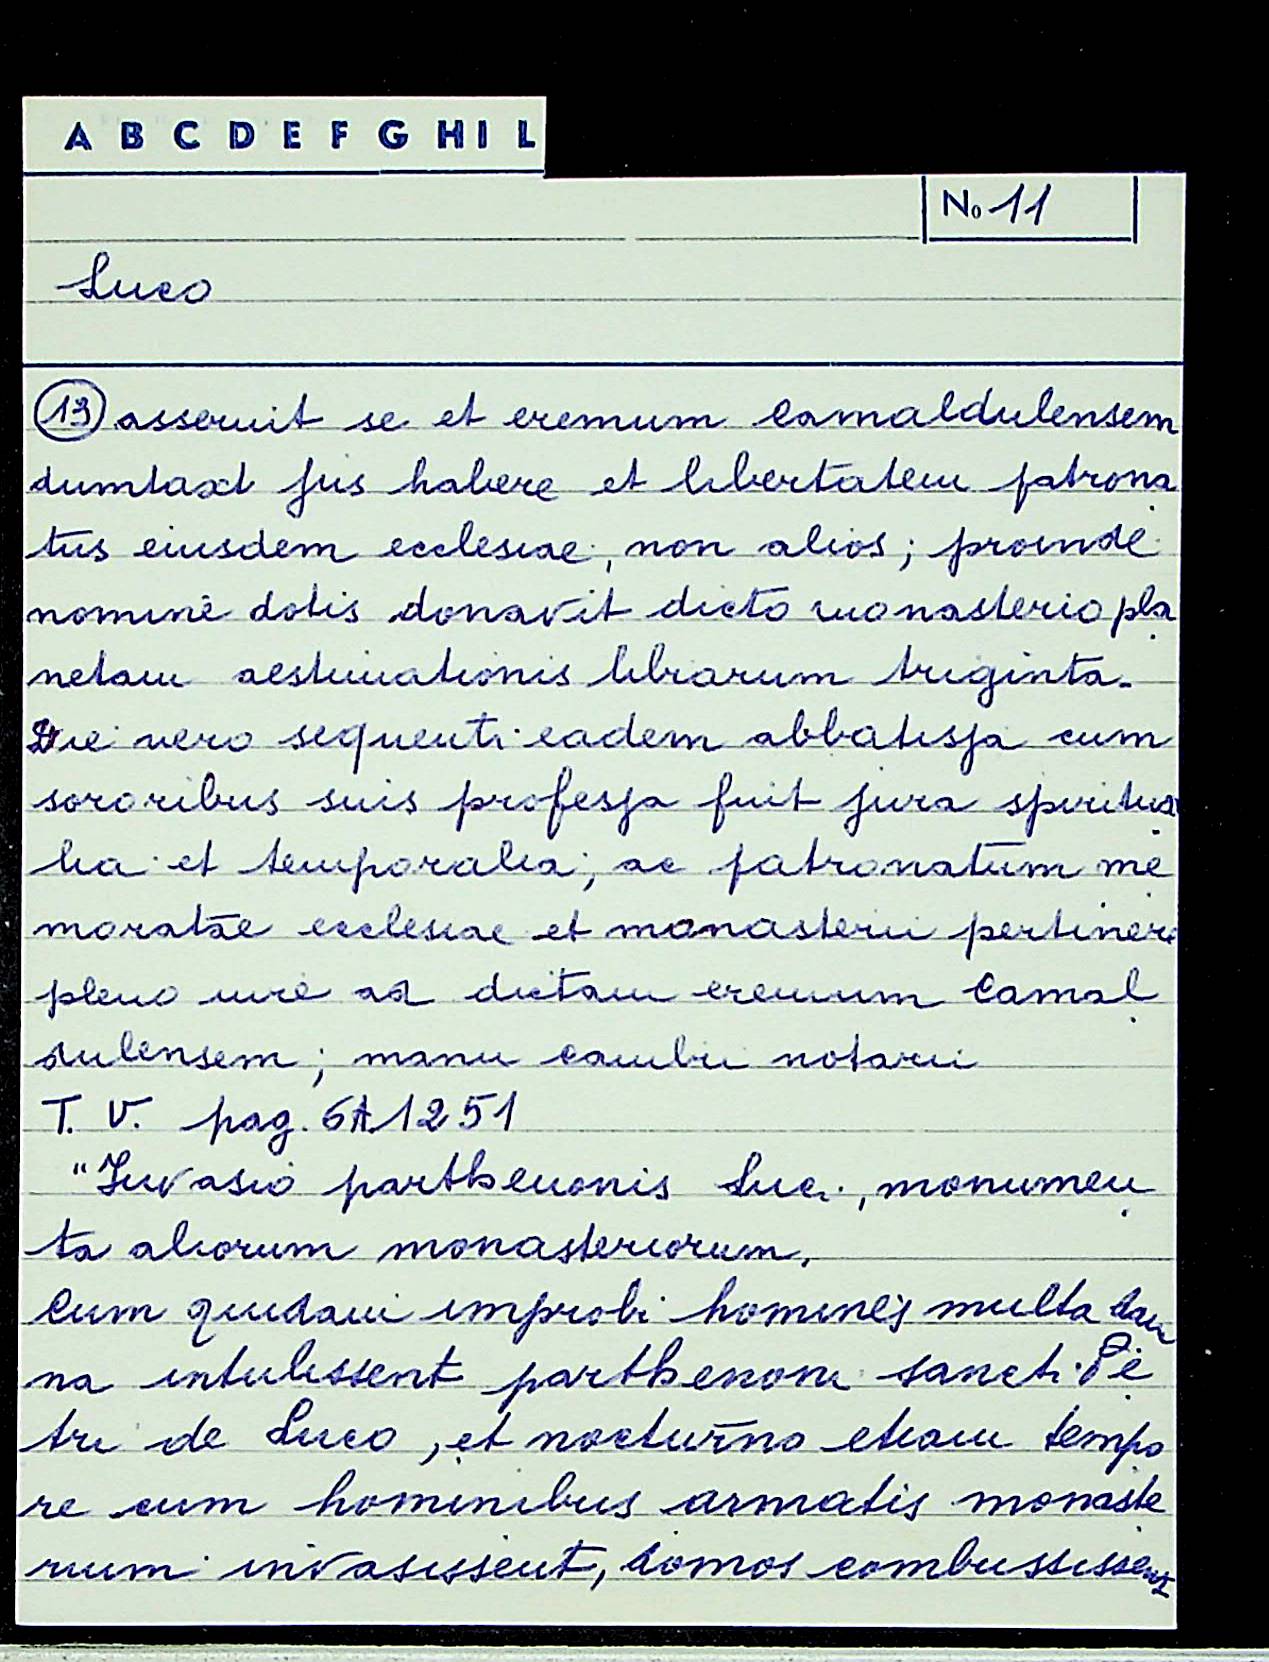 A B C D E F G H I L
No 11
Luco
13 asseruit se et eremum Camaldulensem
dumtaxt jus habere et libertatem patrona
tus eiusdem ecclesiae, non alios; proinde
nomine dotis donavit dicto monasterio pla
netam aestimationis librarum triginta.
Die vero sequenti eadem abbatissa cum
sororibus suis professa fuit jura spiritua
lia et temporalia; ac patronatum me
moratae ecclesiae et monasterii pertinere
pleno iure ad dictam eremum Camal
dulensem; manu cambii notarii
T. V. pag. 61 1251
"Invasio parthenonis Luci, monumen
ta aliorum monasteriorum,
Cum quidam improbi homines multa dam
na intulissent parthenoni sancti Pe
tri de Luco, et nocturno etiam tempo
re cum hominibus armatis monaste
rium invasissent, domos combussissent